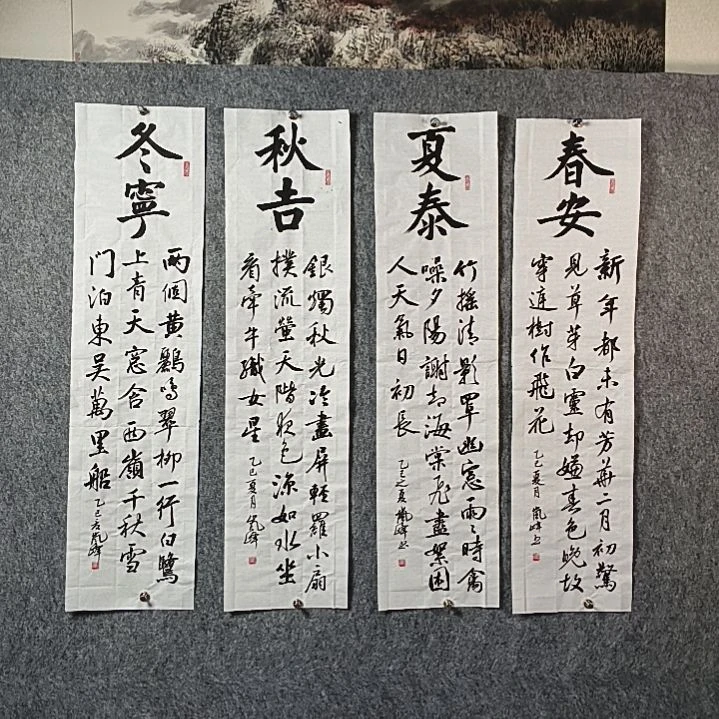 春安
新年都未有芳華二月初驚
見草芽白雪却嫌春色晚故
穿庭樹作飛花
乙巳夏月 嵐峰书
夏泰
竹摇清影罩幽窓兩々時禽
噪夕陽謝却海棠飛盡絮困
人天氣日初長
乙巳之夏 嵐峰书
秋吉
銀燭秋光冷畫屏輕羅小扇
撲流螢天階夜色涼如水坐
看牽牛織女星
乙巳夏月 嵐峰
冬寧
兩個黃鸝鳴翠柳一行白鷺
上青天窓含西嶺千秋雪
門泊東吳萬里船
乙巳夏嵐峰